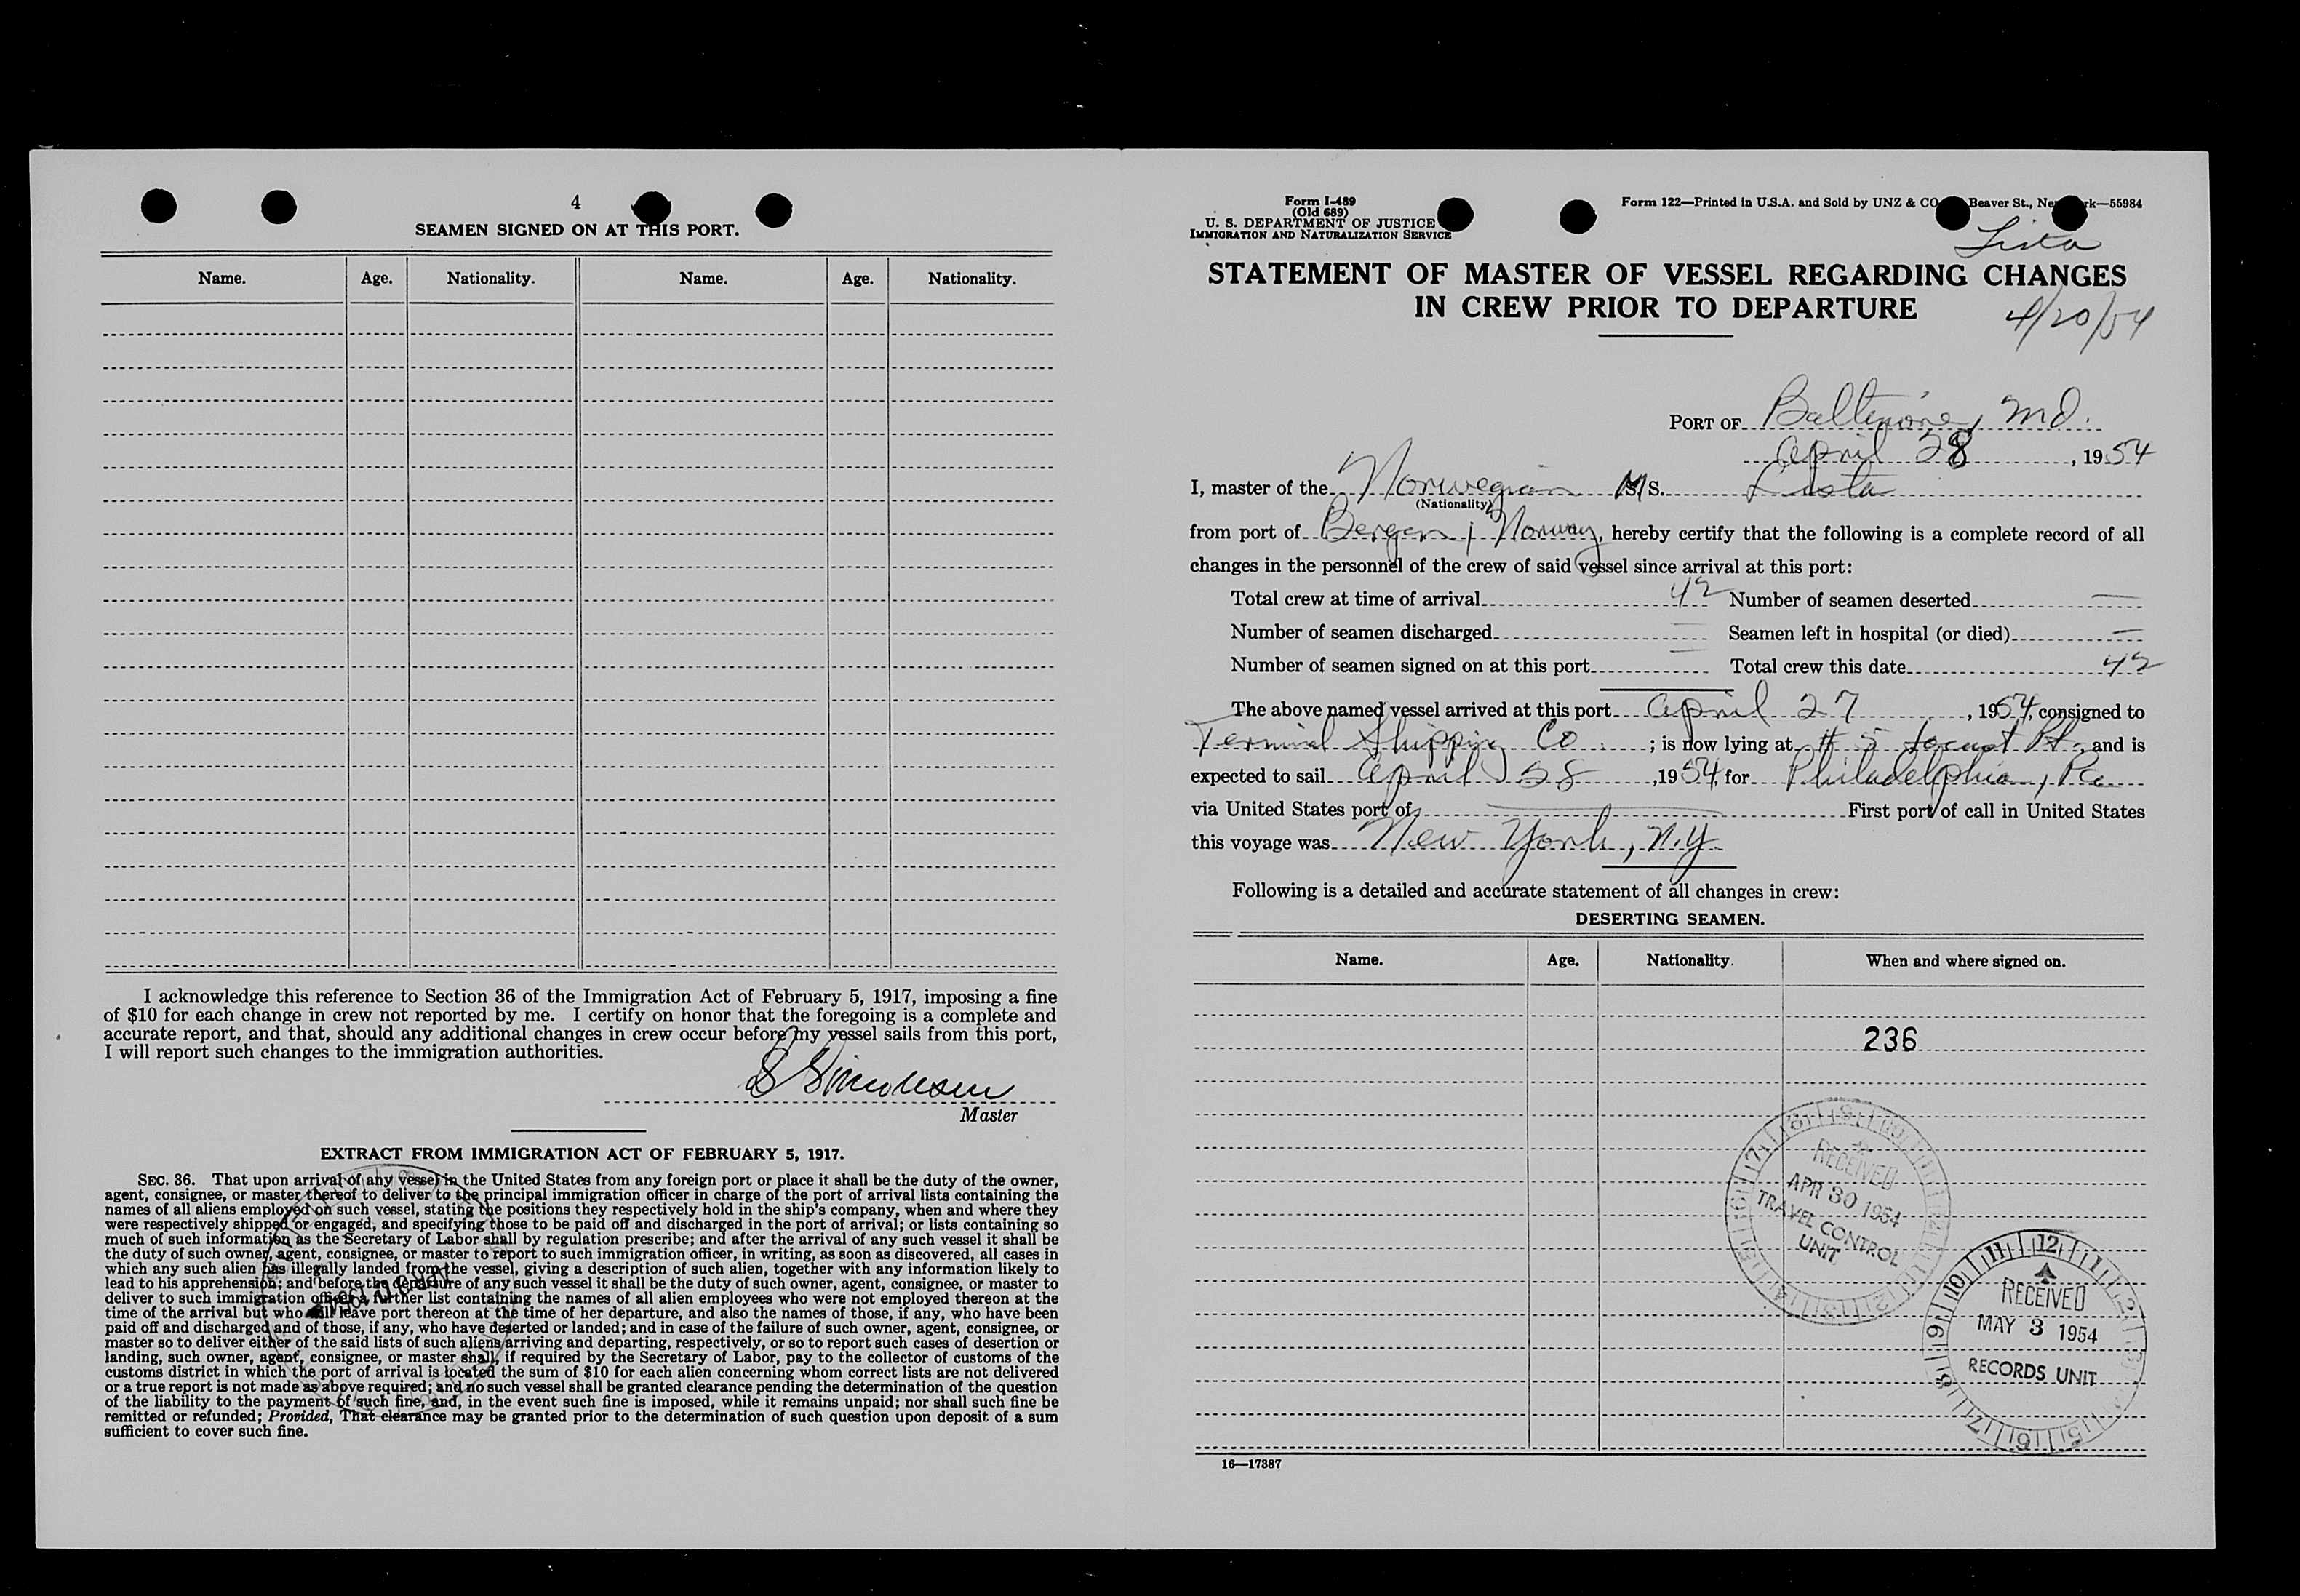 4
SEAMEN SIGNED ON AT THIS PORT.
Name. Age. Nationality. Name. Age. Nationality.
I acknowledge this reference to Section 36 of the Immigration Act of February 5, 1917, imposing a fine
of $10 for each change in crew not reported by me. I certify on honor that the foregoing is a complete and
accurate report, and that, should any additional changes in crew occur before my vessel sails from this port,
I will report such changes to the immigration authorities.
Master
EXTRACT FROM IMMIGRATION ACT OF FEBRUARY 5, 1917.
SEC. 36. That upon arrival of any vessel in the United States from any foreign port or place it shall be the duty of the owner,
agent, consignee, or master thereof to deliver to the principal immigration officer in charge of the port of arrival lists containing the
names of all aliens employed on such vessel, stating the positions they respectively hold in the ship's company, when and where they
were respectively shipped or engaged, and specifying those to be paid off and discharged in the port of arrival; or lists containing so
much of such information as the Secretary of Labor shall by regulation prescribe; and after the arrival of any such vessel it shall be
the duty of such owner, agent, consignee, or master to report to such immigration officer, in writing, as soon as discovered, all cases in
which any such alien has illegally landed from the vessel, giving a description of such alien, together with any information likely to
lead to his apprehension; and before the departure of any such vessel it shall be the duty of such owner, agent, consignee, or master to
deliver to such immigration officer a further list containing the names of all alien employees who were not employed thereon at the
time of the arrival but who will leave port thereon at the time of her departure, and also the names of those, if any, who have been
paid off and discharged and of those, if any, who have deserted or landed; and in case of the failure of such owner, agent, consignee, or
master so to deliver either of the said lists of such aliens arriving and departing, respectively, or so to report such cases of desertion or
landing, such owner, agent, consignee, or master shall, if required by the Secretary of Labor, pay to the collector of customs of the
customs district in which the port of arrival is located the sum of $10 for each alien concerning whom correct lists are not delivered
or a true report is not made as above required; and no such vessel shall be granted clearance pending the determination of the question
of the liability to the payment of such fine, and, in the event such fine is imposed, while it remains unpaid; nor shall such fine be
remitted or refunded; Provided, That clearance may be granted prior to the determination of such question upon deposit of a sum
sufficient to cover such fine.
Form I-489
(Old 689)
U. S. DEPARTMENT OF JUSTICE
IMMIGRATION AND NATURALIZATION SERVICE
Form 122—Printed in U.S.A. and Sold by UNZ & CO Beaver St., Ne rk—55984
Lista
STATEMENT OF MASTER OF VESSEL REGARDING CHANGES
IN CREW PRIOR TO DEPARTURE
4/20/54
PORT OF Baltimore, Md.
April 28, 1954
I, master of the Norwegian M/S. Lista
(Nationality)
from port of Bergen, Norway, hereby certify that the following is a complete record of all
changes in the personnel of the crew of said vessel since arrival at this port:
Total crew at time of arrival 42 Number of seamen deserted —
Number of seamen discharged — Seamen left in hospital (or died) —
Number of seamen signed on at this port — Total crew this date 42
The above named vessel arrived at this port April 27, 1954, consigned to
Terminal Shipping Co.; is now lying at # 5 Locust Pt., and is
expected to sail April 28, 1954, for Philadelphia, Pa.
via United States port of — First port of call in United States
this voyage was New York, N.Y.
Following is a detailed and accurate statement of all changes in crew:
DESERTING SEAMEN.
Name. Age. Nationality. When and where signed on.
236
RECEIVED
APR 30 1954
TRAVEL CONTROL
UNIT
RECEIVED
MAY 3 1954
RECORDS UNIT
16—17387